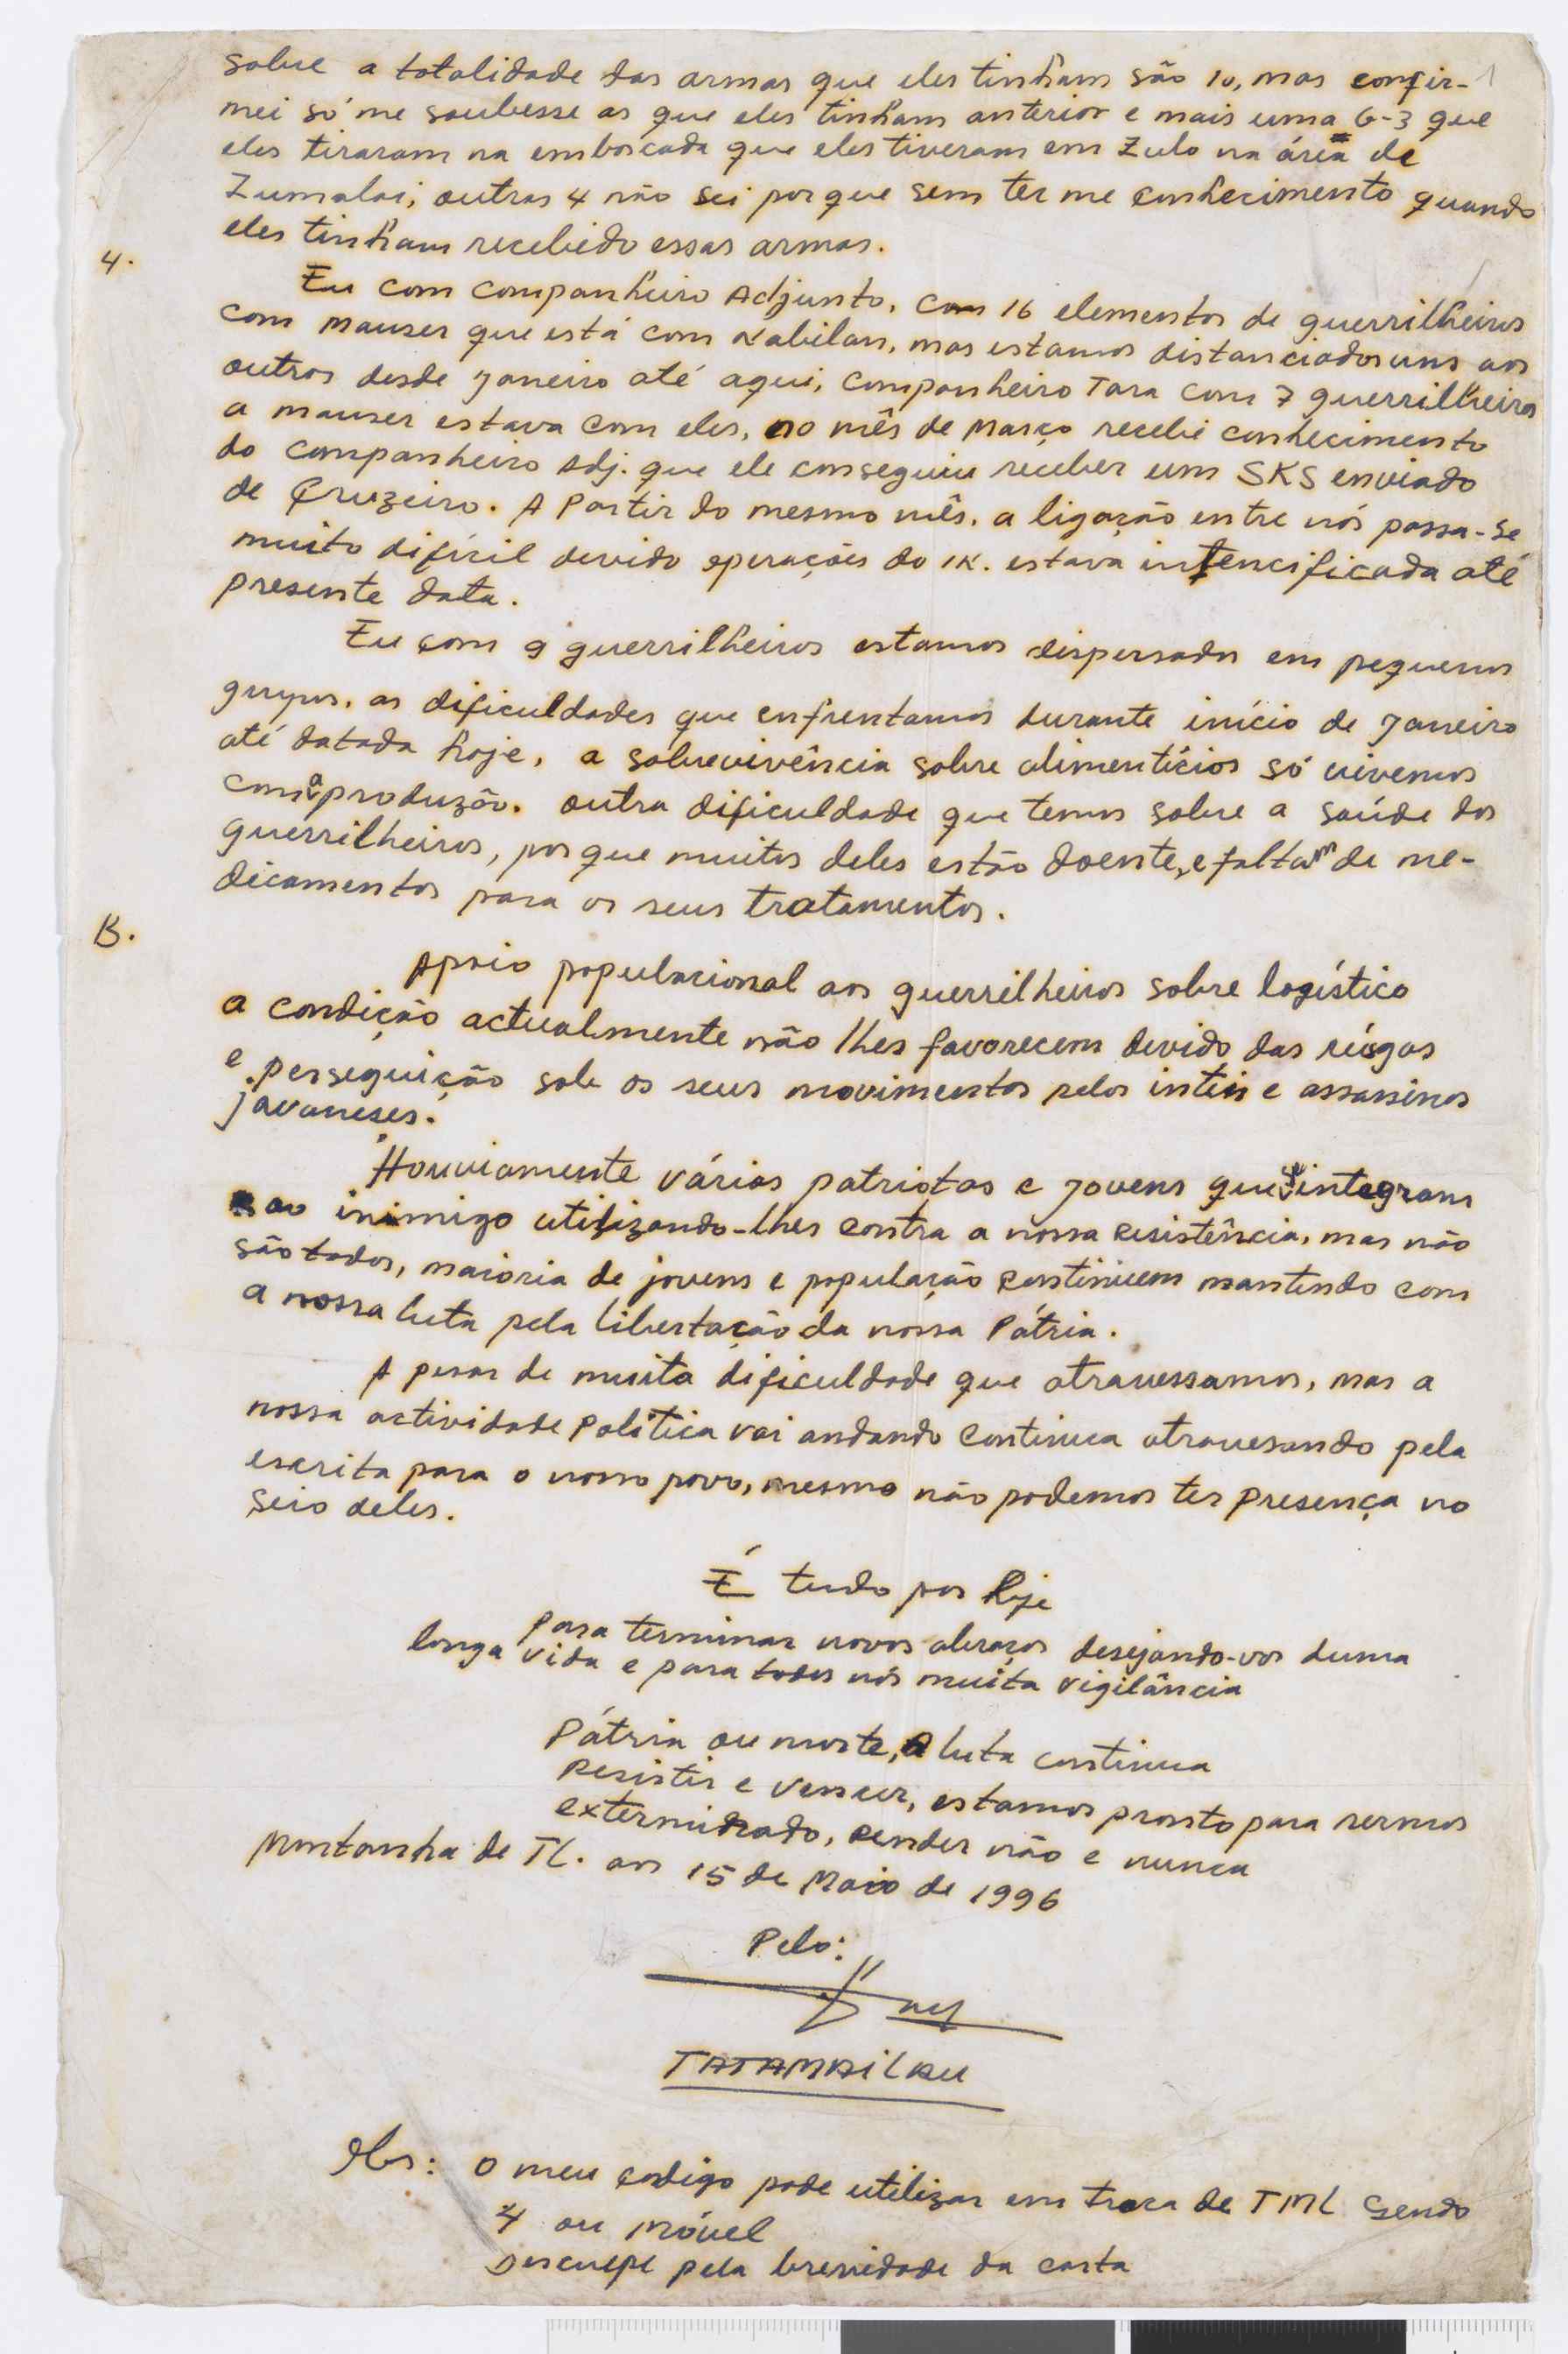 sobre a totalidade das armas que eles tinham são 10, mas confir-
mei só me soubesse as que eles tinham anterior e mais uma G-3 que
eles tiraram na emboscada que eles tiveram em Zulo na área de
Zumalai, outras 4 não sei porque sem ter me conhecimento quando
eles tinham recebido essas armas.
4.
Eu com companheiro Adjunto, com 16 elementos de guerrilheiros
com mauser que está com Nabilan, mas estamos distanciados uns aos
outros desde Janeiro até aqui, companheiro Tara com 7 guerrilheiros
a mauser estava com eles, no mês de Março recebi conhecimento
do companheiro Adj. que ele conseguiu receber um SKS enviado
de Cruzeiro. A Partir do mesmo mês, a ligação entre nós passa-se
muito difícil devido operações do IK. estava intencificada até
presente data.
Eu com 9 guerrilheiros estamos dispersados em pequenos
grupos, as dificuldades que enfrentamos durante início de Janeiro
até datada hoje, a sobrevivência sobre alimentícios só vivemos
com a produzão. outra dificuldade que temos sobre a saúde dos
guerrilheiros, porque muitos deles estão doente, e faltam de me-
dicamentos para os seus tratamentos.
B.
Apoio populacional aos guerrilheiros sobre logístico
a condição actualmente não lhes favorecem devido das rúsgas
e perseguição sob os seus movimentos pelos intéis e assassinos
javaneses.
Houviamente várias patriotas e jovens que se integram
ao inimigo utilizando-lhes contra a nossa Resistência, mas não
são todos, maioria de jovens e população continuem mantendo com
a nossa luta pela libertação da nossa Pátria.
A pesar de muita dificuldade que atravessamos, mas a
nossa actividade Política vai andando continua atravesando pela
escrita para o nosso povo, mesmo não podemos ter presença no
seio deles.
É tudo por hje
Para terminar novos abraços desejando-vos duma
longa vida e para todos nós muita vigilância
Pátria ou morte, A luta continua
Resistir e Vencer, estamos pronto para sermos
exterminado, render não e nunca
Montanha de TL. aos 15 de Maio de 1996
Pelo:
TATAMAILAU
Obs: O meu código pode utilizar em troca de TML sendo
4 ou Móvel
Desculpe pela brevidade da carta